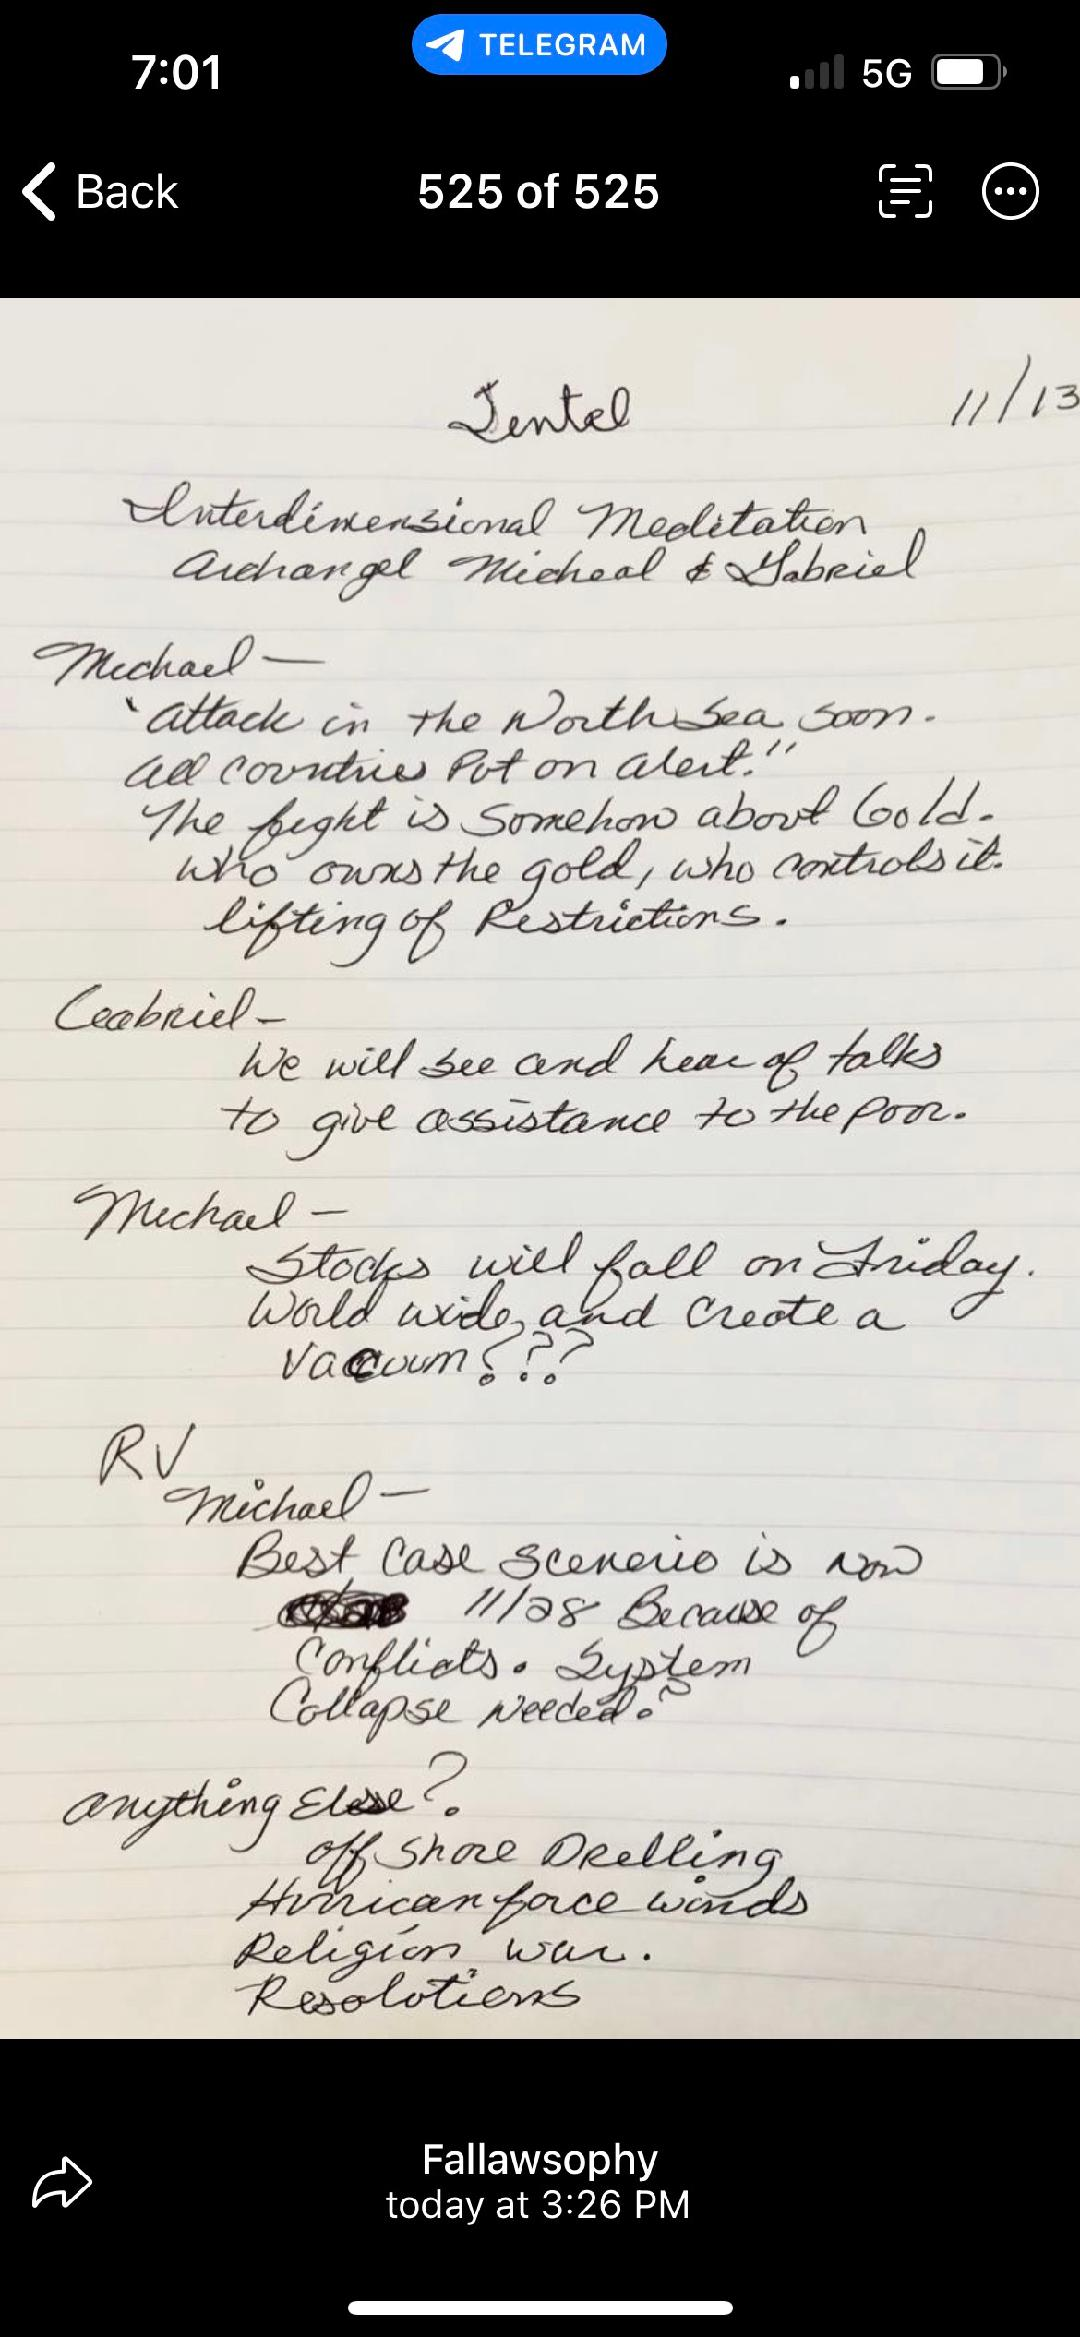 7:01
TELEGRAM
5G
Back
525 of 525
11/13
Interdimensional Meditation
Archangel Micheal & Gabriel
Michael —
"Attack in the North Sea soon.
All Countries Put on Alert."
The fight is Somehow about Gold.
Who owns the gold, who controls it.
lifting of Restrictions.
Gabriel -
We will see and hear of talks
to give assistance to the poor.
Michael —
Stocks will fall on Friday.
World wide, and Create a
Vacuum???
RV
Michael —
Best Case Scenerio is Now
11/28 Because of
Conflicts. System
Collapse Needed?
Anything Else?
Off Shore Drelling
Hurrican force winds
Religion war.
Resolutions
Fallawsophy
today at 3:26 PM